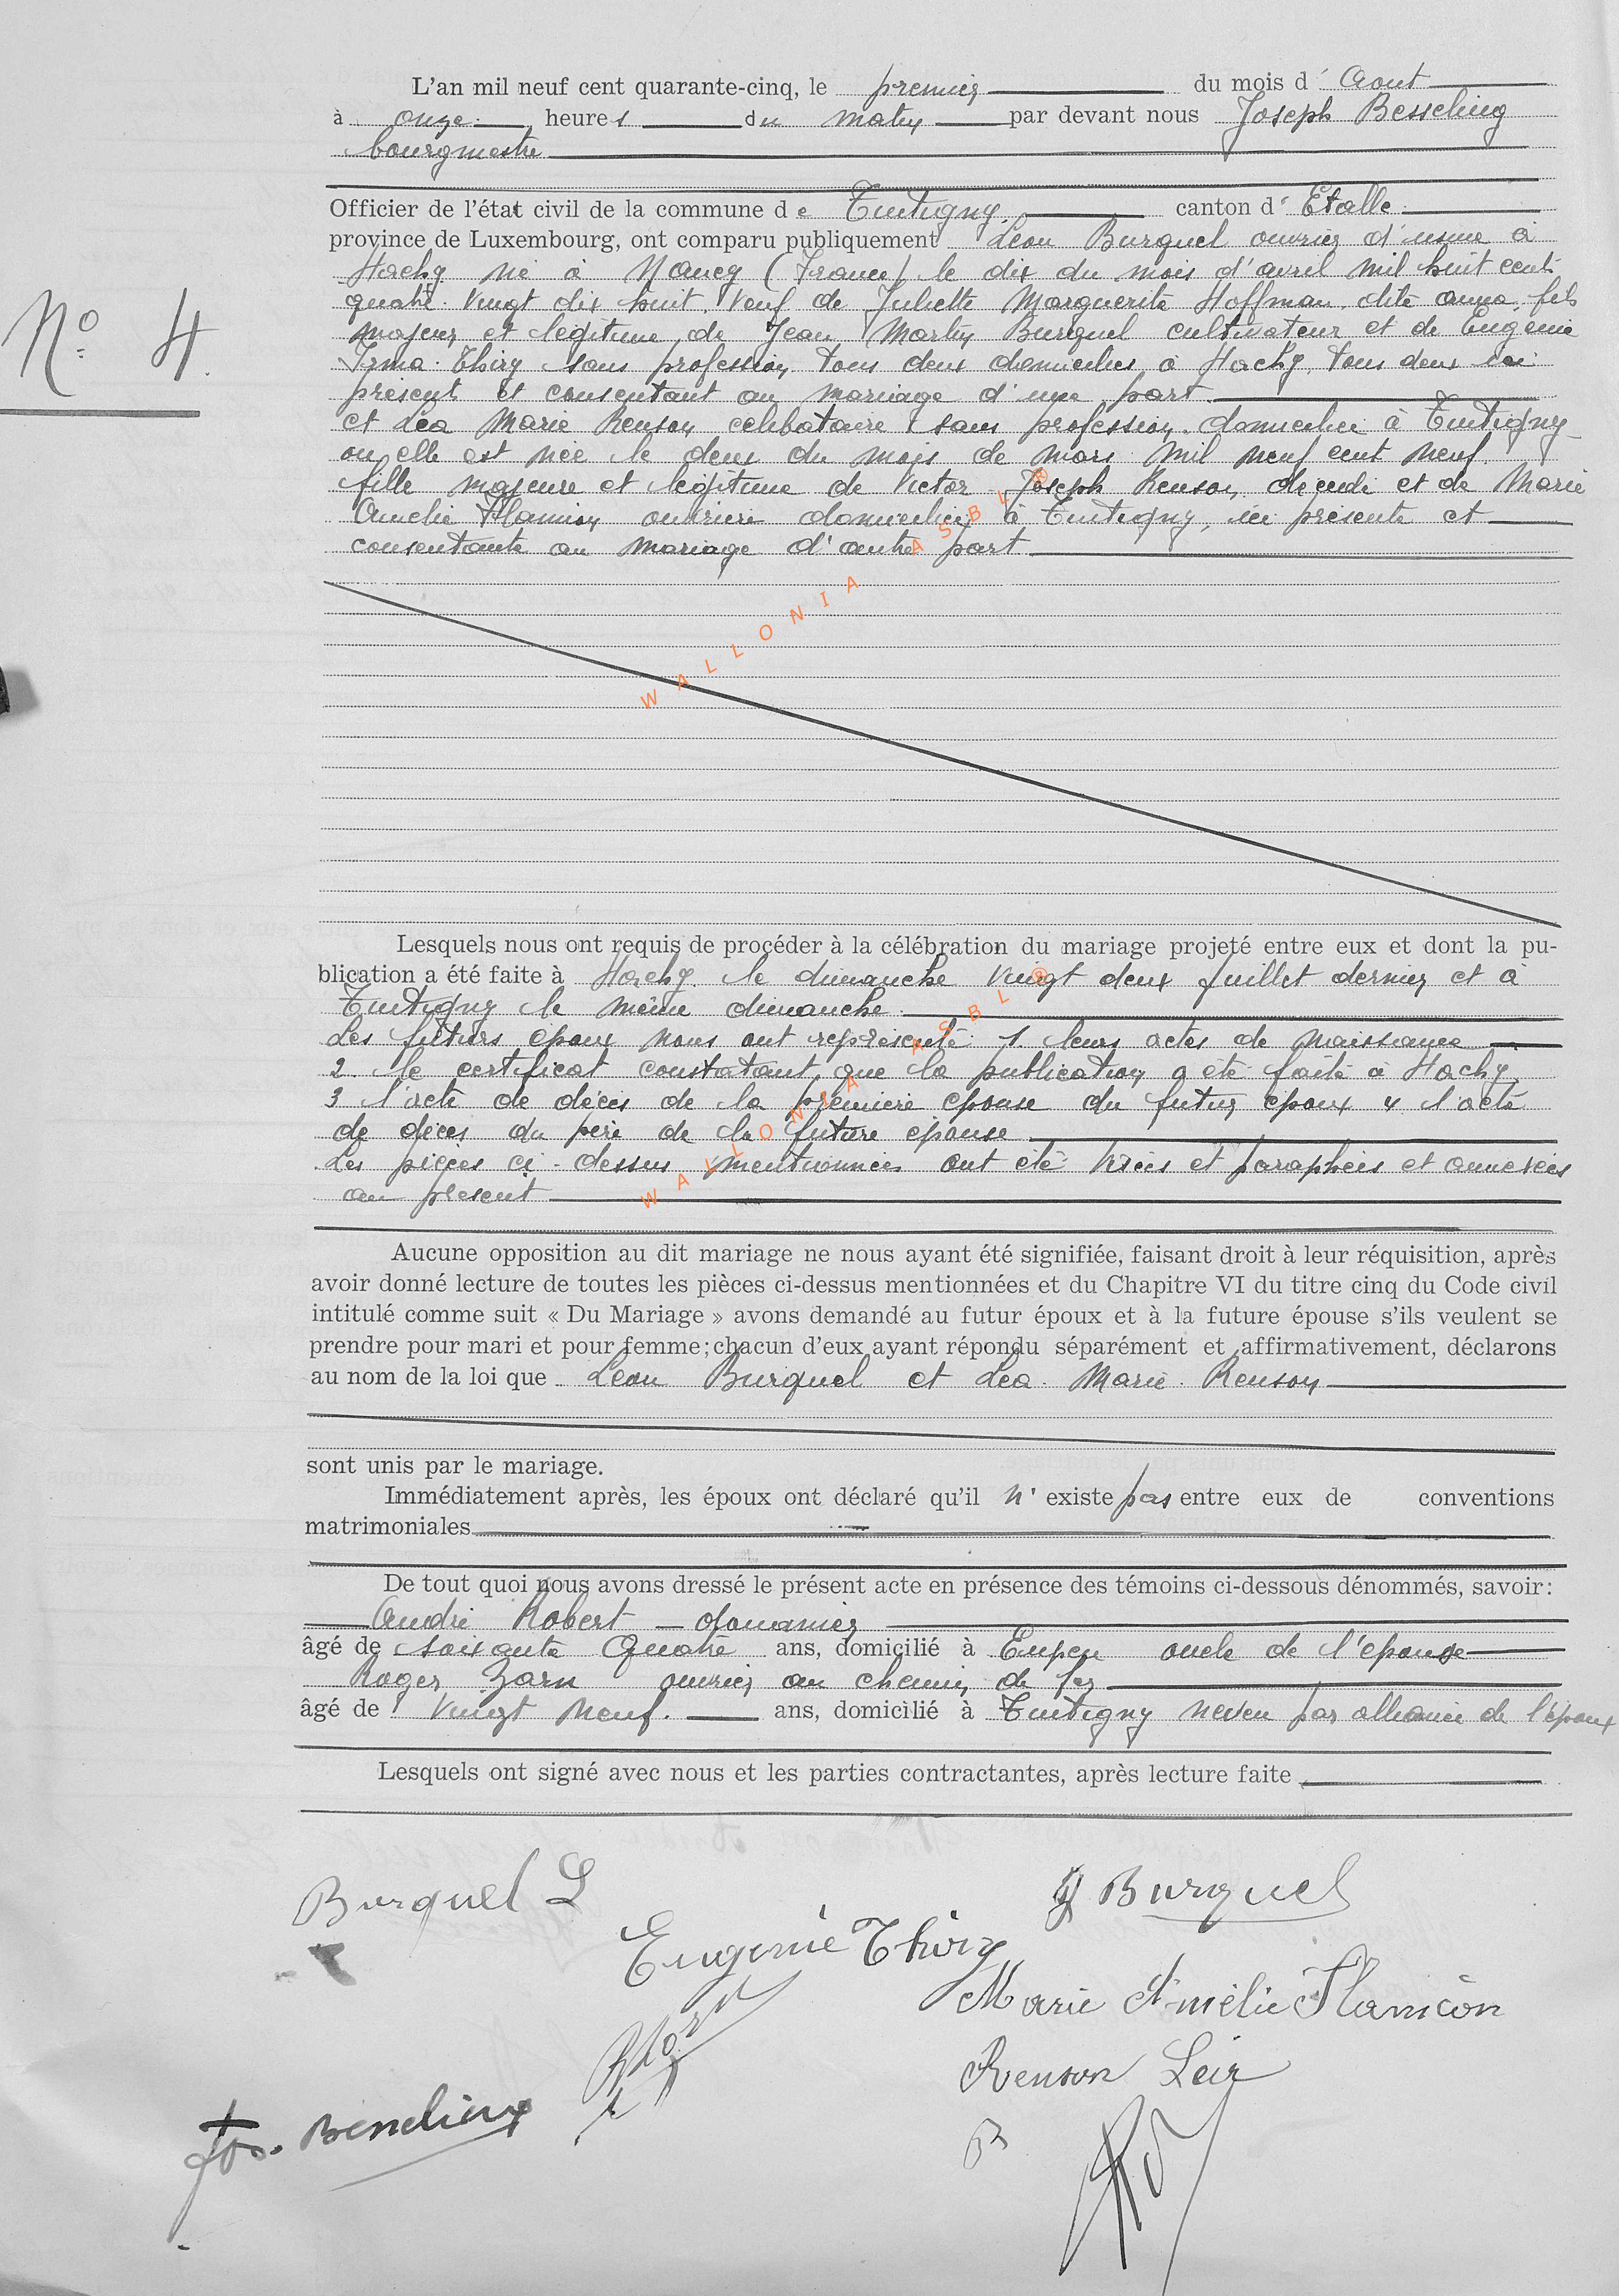 L'an mil neuf cent quarante-cinq, le premier du mois d' Aout
à onze heures du matin par devant nous Joseph Bessling
bourgmestre
Officier de l'état civil de la commune de Tintigny canton d' Etalle
province de Luxembourg, ont comparu publiquement Léon Burquel ouvrier d'usine à
Hachy né à Nancy (France) le dix du mois d'avril mil huit cent
quatre vingt dix huit, veuf de Juliette Marguerite Hoffman, dite anna, fils
majeur et légitime de Jean Martin Burquel cultivateur et de Eugénie
Irma Thiry sans profession tous deux domiciliés à Hachy, tous deux ici
présent et consentant au mariage d'une part.
et Léa Marie Renson célibataire sans profession domiciliée à Tintigny
ou elle est née le deux du mois de mars mil neuf cent neuf.
fille majeure et légitime de Victor Joseph Renson, décédé et de Marie
Amélie Flamion ouvrière domiciliée à Tintigny, ici présente et
consentante au mariage d'autre part
WALLONIA ASBL ®
Lesquels nous ont requis de procéder à la célébration du mariage projeté entre eux et dont la pu-
blication a été faite à Hachy le dimanche vingt deux juillet dernier et à
Tintigny le même dimanche
Les futurs époux nous ont représenté 1. leurs actes de naissance
2. le certificat constatant que la publication a été faite à Hachy
3 l'acte de décès de la première épouse du futur époux 4 l'acte
de décès du père de la future épouse
Les pièces ci-dessus mentionnées ont été visées et paraphées et annexées
au présent
WALLONIA ASBL ®
Aucune opposition au dit mariage ne nous ayant été signifiée, faisant droit à leur réquisition, après
avoir donné lecture de toutes les pièces ci-dessus mentionnées et du Chapitre VI du titre cinq du Code civil
intitulé comme suit « Du Mariage » avons demandé au futur époux et à la future épouse s'ils veulent se
prendre pour mari et pour femme; chacun d'eux ayant répondu séparément et affirmativement, déclarons
au nom de la loi que Léon Burquel et Léa Marie Renson
sont unis par le mariage.
Immédiatement après, les époux ont déclaré qu'il n'existe pas entre eux de conventions
matrimoniales
De tout quoi nous avons dressé le présent acte en présence des témoins ci-dessous dénommés, savoir:
André Robert douanier
âgé de soixante Quatre ans, domicilié à Eupen oncle de l'épouse
Roger Zarn ouvrier au chemin de fer
âgé de vingt neuf. ans, domicilié à Tintigny neveu par alliance de l'époux
Lesquels ont signé avec nous et les parties contractantes, après lecture faite
N° 4.
Burquel L
J Burquel
Eugénie Thiry
Marie Amélie Flamion
Renson Léa